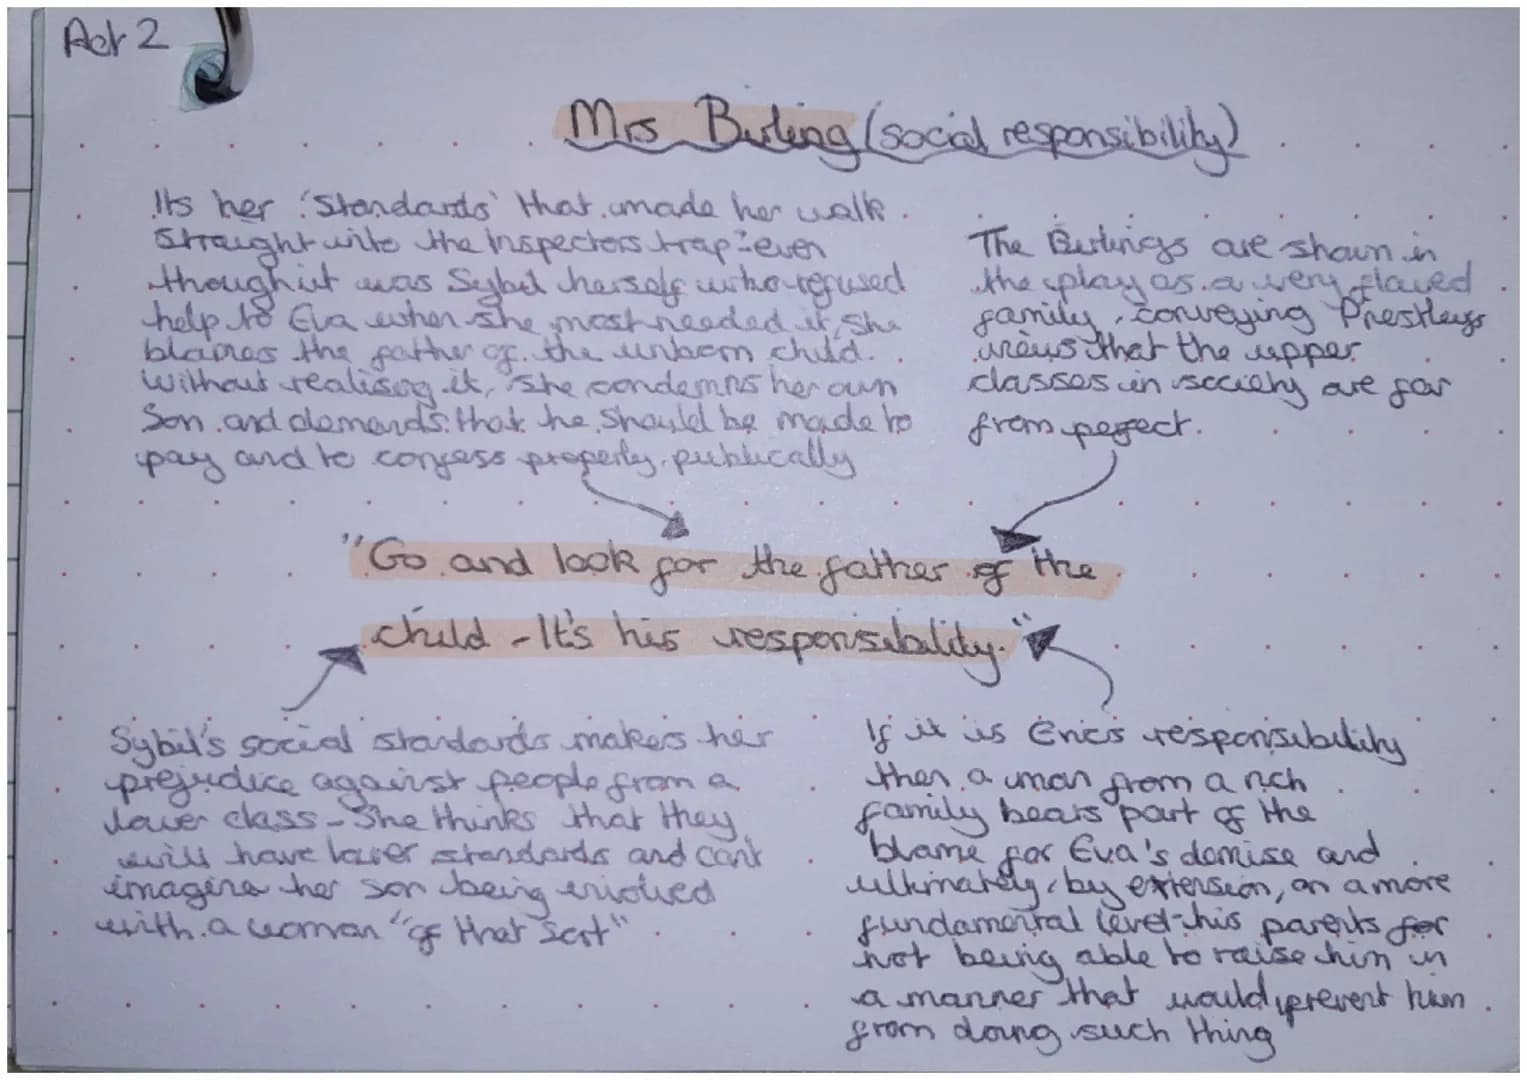 Act 2
Mrs Birling (social responsibility)
Its her 'Standards' that made her walk
straight into the Inspectors trap - even
though it was Sybil herself who refused
help to Eva when she most needed it, she
blames the father of the unborn child.
Without realising it, she condemns her own
Son and demands that he should be made to
pay and to confess properly, publically
The Birlings are shown in
the play as a very flawed
family, conveying Priestleys
views that the upper
classes in society are far
from perfect.
"Go and look for the father of the
child - It's his responsibility."
Sybil's social standards makes her
prejudice against people from a
lower class - She thinks that they
will have lower standards and cant
imagine her son being involved
with a woman "of that sort"
If it is Erics responsibility
then a man from a rich
family bears part of the
blame for Eva's demise and
ultimately, by extension, on a more
fundamental level - his parents for
not being able to raise him in
a manner that would prevent him
from doing such thing